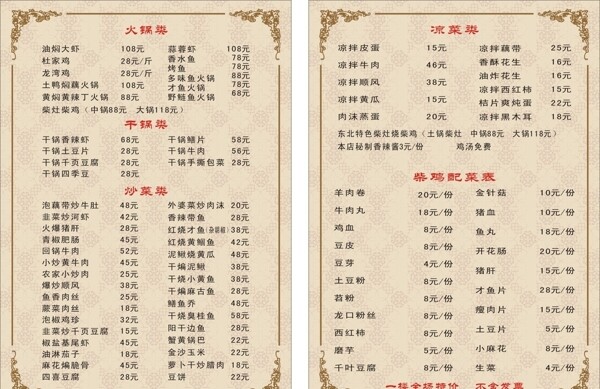 火锅类
油焖大虾 108元
杜家鸡 28元/斤
龙湾鸡 28元/斤
土鸭焖藕火锅 108元
黄焖黄辣丁火锅 88元
蒜蓉虾 108元
香水鱼 78元
烤鱼 78元
多味鱼火锅 88元
才鱼火锅 78元
野鲢鱼火锅 68元
柴灶柴鸡（中锅88元 大锅118元）
干锅类
干锅香辣虾 68元
干锅土豆片 28元
干锅千页豆腐 28元
干锅四季豆 28元
干锅鳝片 58元
干锅牛肉 56元
干锅手撕包菜 28元
炒菜类
泡藕带炒牛肚 48元
韭菜炒河虾 42元
火爆猪肝 28元
青椒肥肠 45元
回锅牛肉 52元
小炒黄牛肉 45元
农家小炒肉 28元
爆炒顺风 38元
鱼香肉丝 28元
蒙菜肉丝 18元
泡椒鸡珍 32元
韭菜炒千页豆腐 15元
椒盐基尾虾 45元
油淋茄子 18元
麻花煸脆骨 45元
四喜豆腐 28元
外婆菜炒肉沫 20元
香辣带鱼 28元
红烧才鱼 38元
红烧黄鲴鱼 42元
泥鳅烧黄瓜 48元
干煸泥鳅 38元
干烧小黄鱼 38元
干煸麻古鱼 28元
鳝鱼乔 48元
干烧臭桂鱼 58元
阳干边鱼 28元
蟹黄锅巴 22元
金沙玉米 22元
萝卜干炒腊肉 18元
豆饼 22元
凉菜类
凉拌皮蛋 15元
凉拌牛肉 46元
凉拌顺风 38元
凉拌黄瓜 15元
肉沫蒸蛋 20元
凉拌藕带 25元
香酥花生 16元
油炸花生 16元
凉拌西红柿 15元
桔片爽炖蛋 22元
凉拌黑木耳 18元
东北特色柴灶烧柴鸡（土锅柴灶 中锅88元 大锅118元）
本店秘制香辣酱3元/份 鸡汤免费
柴鸡配菜表
羊肉卷 20元/份
牛肉丸 18元/份
鸡血 8元/份
豆皮 8元/份
豆芽 4元/份
土豆粉 8元/份
苕粉 8元/份
龙口粉丝 8元/份
西红柿 8元/份
磨芋 5元/份
千叶豆腐 8元/份
金针菇 10元/份
猪血 10元/份
鱼丸 18元/份
开花肠 20元/份
猪肝 15元/份
才鱼片 25元/份
瘦肉片 15元/份
土豆片 5元/份
小麻花 8元/份
生菜 4元/份